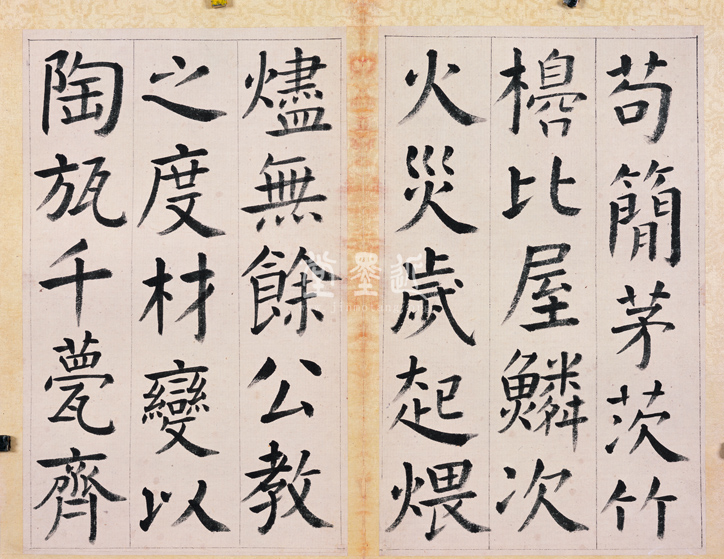 苟簡茅茨竹
櫋比屋鱗次
火災歲起煨
燼無餘公教
之度材變以
陶瓬千甍齊